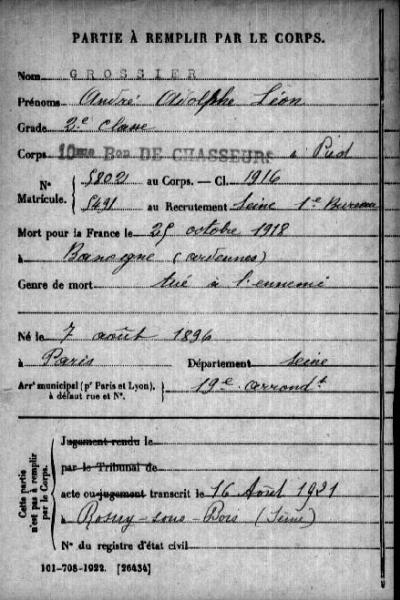 PARTIE À REMPLIR PAR LE CORPS.
Nom GROSSIER
Prénoms André Adolphe Léon
Grade 2e classe
Corps 10ème Bon DE CHASSEURS à Pied
N° Matricule. { 5802 au Corps. — Cl. 1916
5491 au Recrutement Seine 1er Bureau
Mort pour la France le 25 octobre 1918
à Banogne (ardennes)
Genre de mort tué à l'ennemi
Né le 7 août 1896
à Paris Département Seine
Arrt municipal (pr Paris et Lyon), à défaut rue et N°. } 19e arrondt
Cette partie n'est pas à remplir par le Corps.
Jugement rendu le
par le Tribunal de
acte ou jugement transcrit le 16 Août 1921
à Rosny-sous-Bois (Seine)
N° du registre d'état civil
101-708-1922. [26434]